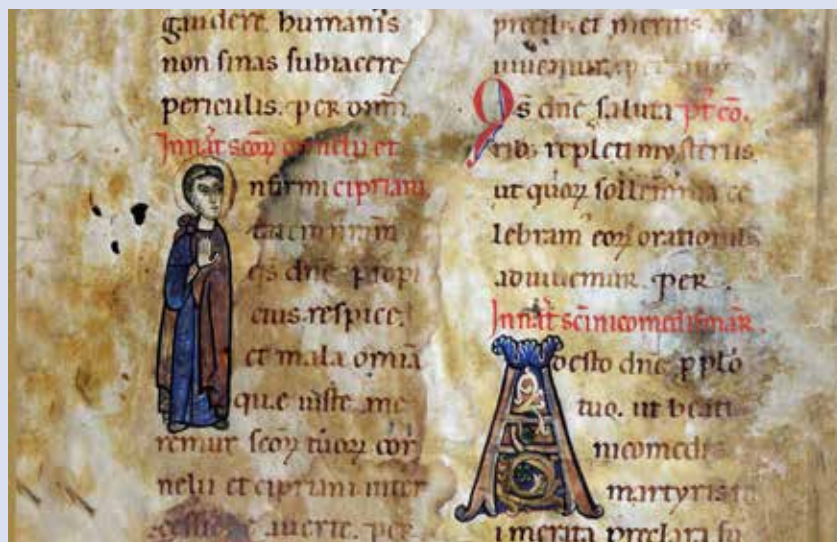 gaudere. humanis
non sinas subiacere
periculis. per omīn
In nat̄ sc̄oꝝ cornelii et
nfirmi cipriani
tatem nram
es dn̄e propi
cius respice.
et mala omīa
que iuste me
remur sc̄oꝝ tuoꝝ cor
nelii et cipriani inter
auerte. per
precib; et meritis ad
iuuemur. per
Qs dn̄e saluta pt̄ cō.
rib; repleti mysteriis
ut quoꝝ sollemnia ce
lebram᾽ eoꝝ orationib;
adiuuemur. per.
In nat̄ sc̄i nicomedis mar̄.
Adesto dn̄e pplō
tuo. ut beati
nicomedis
martyris
merita preclara su